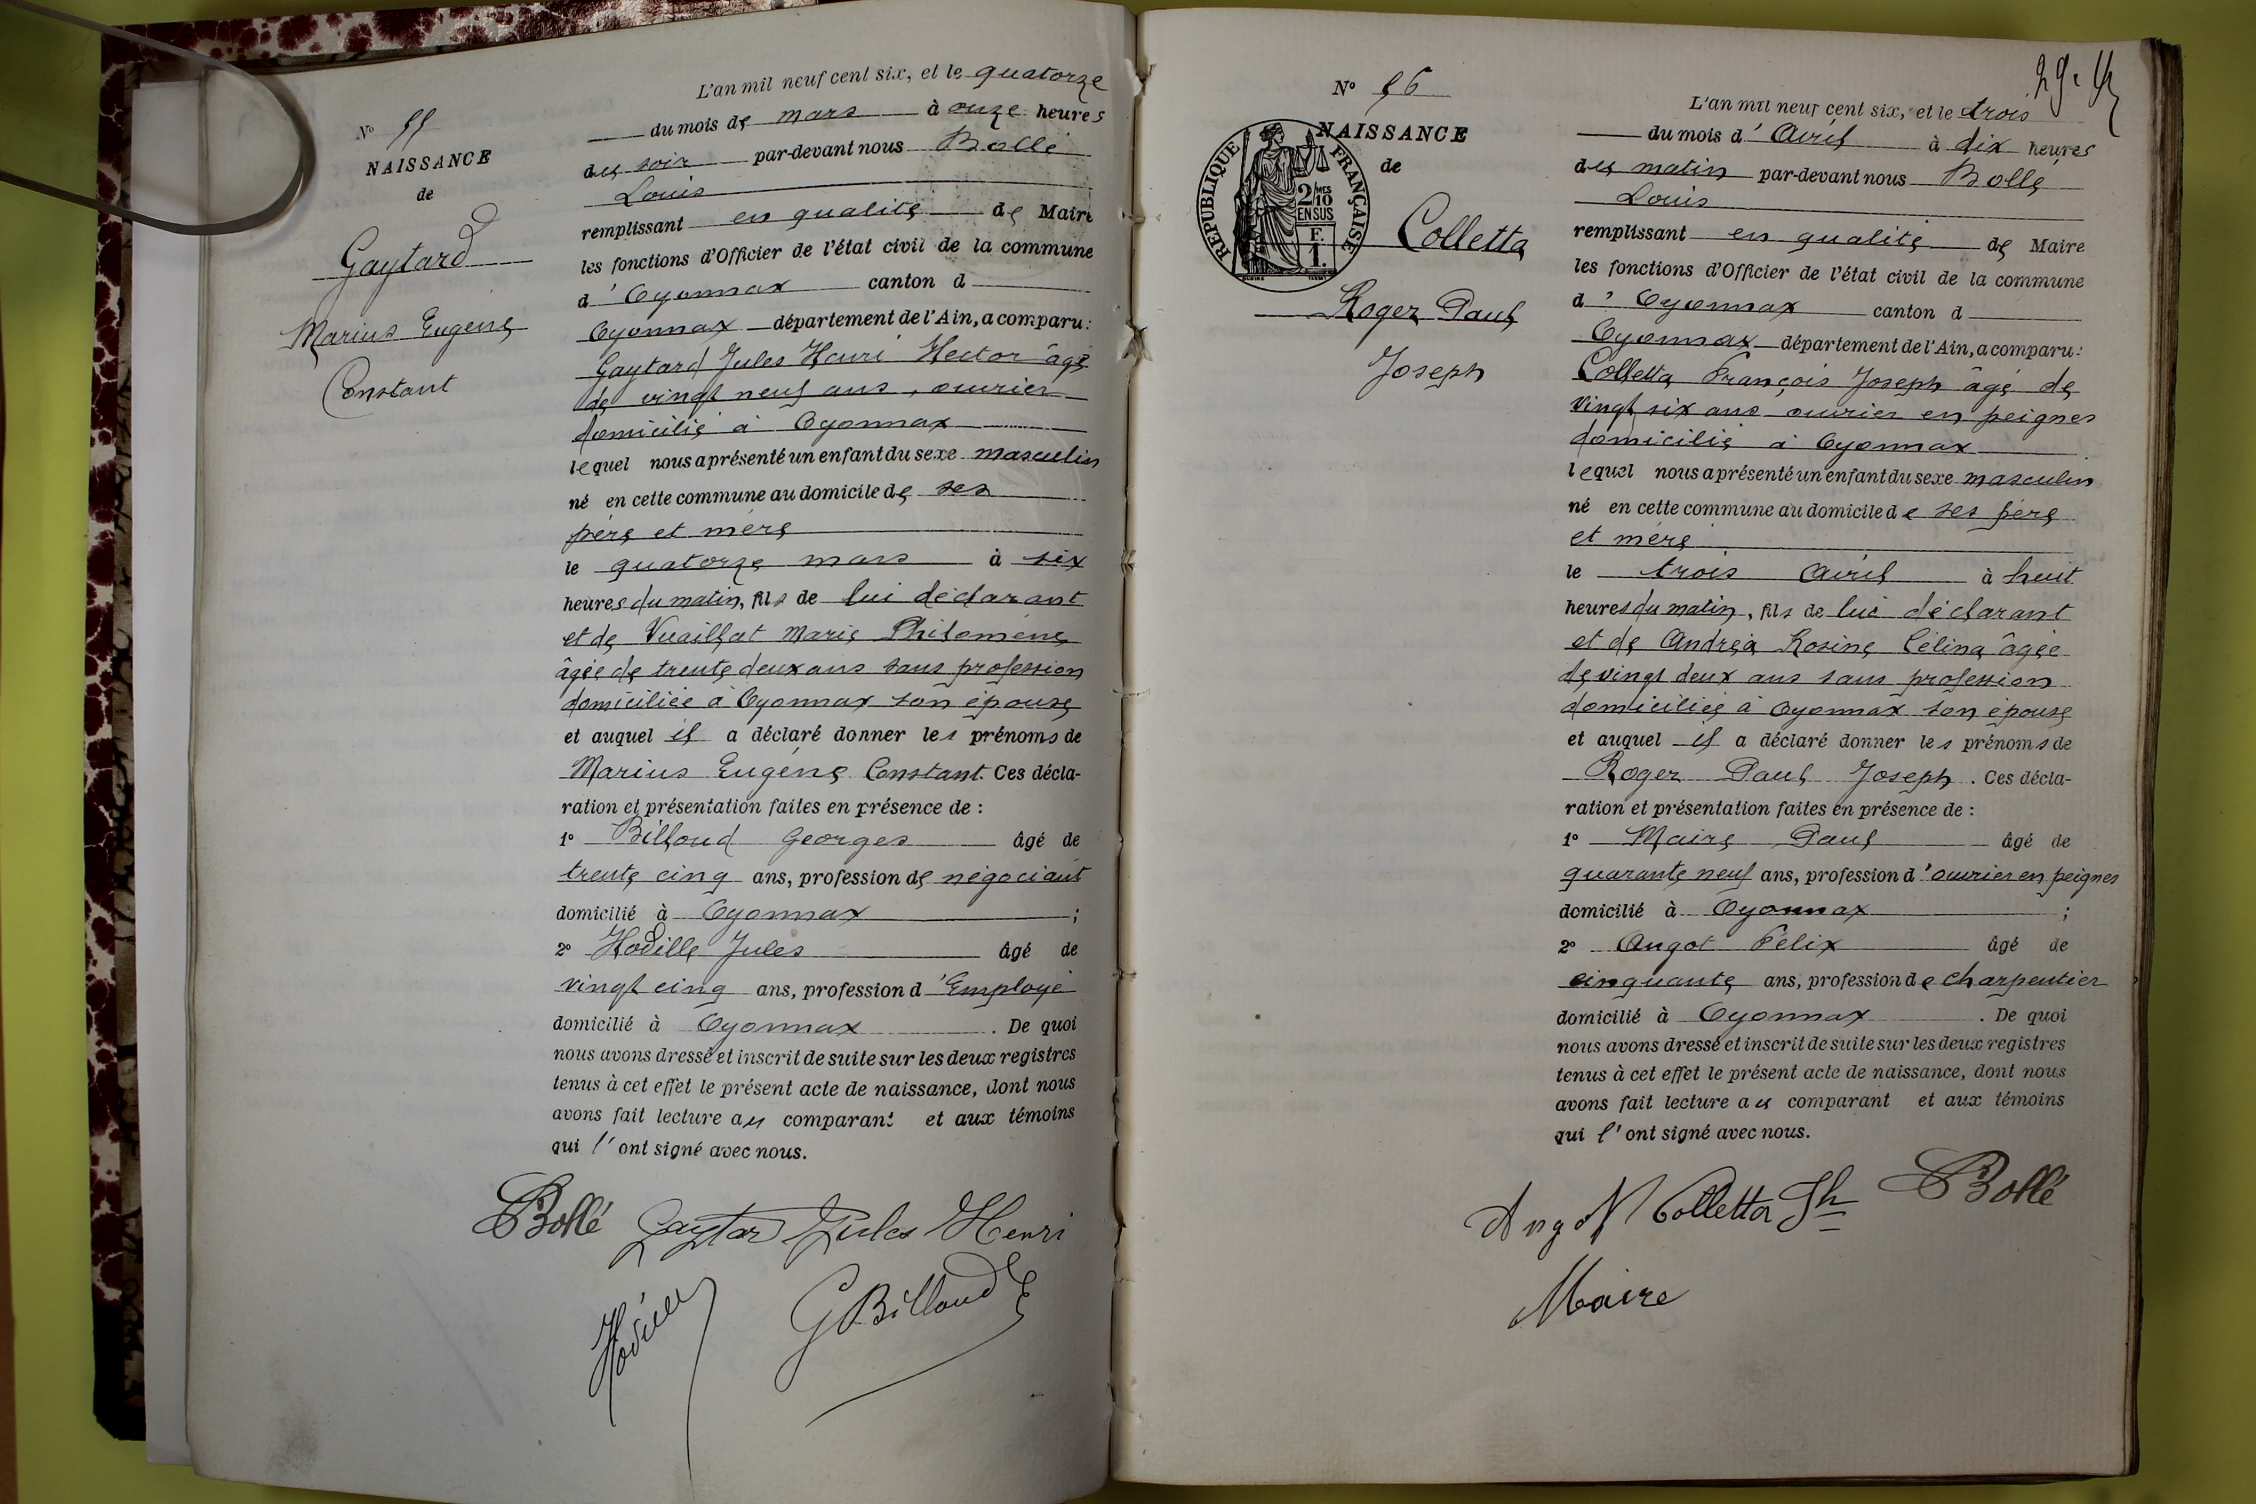 N° 55
NAISSANCE
de
Gaytard
Marius Eugène
Constant
L'an mil neuf cent six, et le quatorze
du mois de mars à onze heures
du soir par-devant nous Bollé
Louis
remplissant en qualité de Maire
les fonctions d'Officier de l'état civil de la commune
d'Oyonnax canton d
Oyonnax département de l'Ain, a comparu :
Gaytard Jules Henri Hector âgé
de vingt neuf ans, ouvrier
domicilié à Oyonnax
lequel nous a présenté un enfant du sexe masculin
né en cette commune au domicile de ses
père et mère
le quatorze mars à six
heures du matin, fils de lui déclarant
et de Vuaillat Marie Philomène
âgée de trente deux ans sans profession
domiciliée à Oyonnax son épouse
et auquel il a déclaré donner les prénoms de
Marius Eugène Constant. Ces décla-
ration et présentation faites en présence de :
1° Billoud Georges âgé de
trente cinq ans, profession de négociant
domicilié à Oyonnax ;
2° Hodille Jules âgé de
vingt cinq ans, profession d'Employé
domicilié à Oyonnax . De quoi
nous avons dressé et inscrit de suite sur les deux registres
tenus à cet effet le présent acte de naissance, dont nous
avons fait lecture au comparant et aux témoins
qui l'ont signé avec nous.
Bollé Gaytar Jules Henri
Hodille G Billoud
29.
N° 56
NAISSANCE
de
RÉPUBLIQUE FRANÇAISE
2/10 MES
EN SUS
F.
1.
Colletta
Roger Paul
Joseph
L'an mil neuf cent six, et le trois
du mois d'Avril à dix heures
du matin par-devant nous Bollé
Louis
remplissant en qualité de Maire
les fonctions d'Officier de l'état civil de la commune
d'Oyonnax canton d
Oyonnax département de l'Ain, a comparu :
Colletta François Joseph âgé de
vingt six ans ouvrier en peignes
domicilié à Oyonnax
lequel nous a présenté un enfant du sexe masculin
né en cette commune au domicile de ses père
et mère
le trois Avril à huit
heures du matin, fils de lui déclarant
et de Andréa Rosine Célina âgée
de vingt deux ans sans profession
domiciliée à Oyonnax son épouse
et auquel il a déclaré donner les prénoms de
Roger Paul Joseph . Ces décla-
ration et présentation faites en présence de :
1° Maire Paul âgé de
quarante neuf ans, profession d'ouvrier en peignes
domicilié à Oyonnax ;
2° Angot Félix âgé de
cinquante ans, profession de charpentier
domicilié à Oyonnax . De quoi
nous avons dressé et inscrit de suite sur les deux registres
tenus à cet effet le présent acte de naissance, dont nous
avons fait lecture au comparant et aux témoins
qui l'ont signé avec nous.
Angot Colletta Jh Bollé
Maire